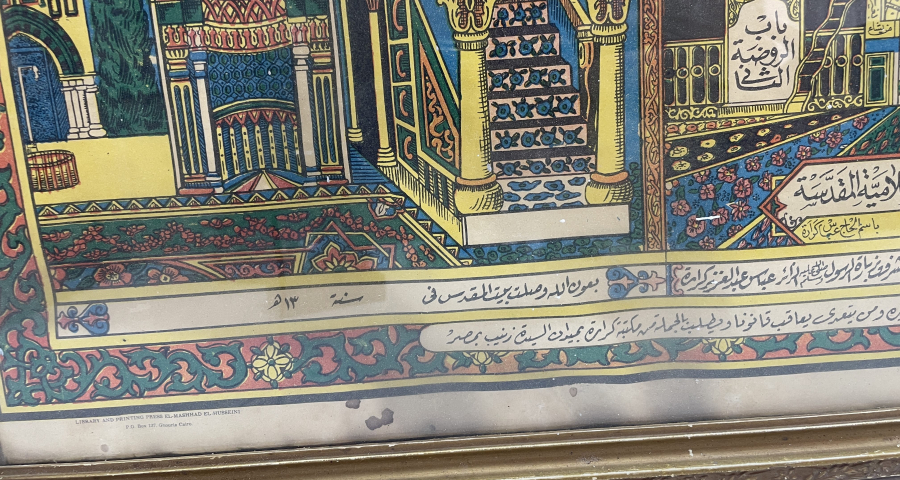 باب
الروضة
الثانى
لامية المقدسة
باسم الحاج عباس كرارة
الرسول صلى الله عليه وسلم الزائر عباس عبد العزيز كرارة
بعون الله وصلت بيت المقدس فى سنة ١٣ هـ
ره ومن يتعدى يعاقب قانونا ويطلب بالجملة من مكتبة كرارة بميدان السيدة زينب بمصر
LIBRARY AND PRINTING PRESS EL-MASHHAD EL-HUSSEINI
P.O. Box 137, Ghouria Cairo.